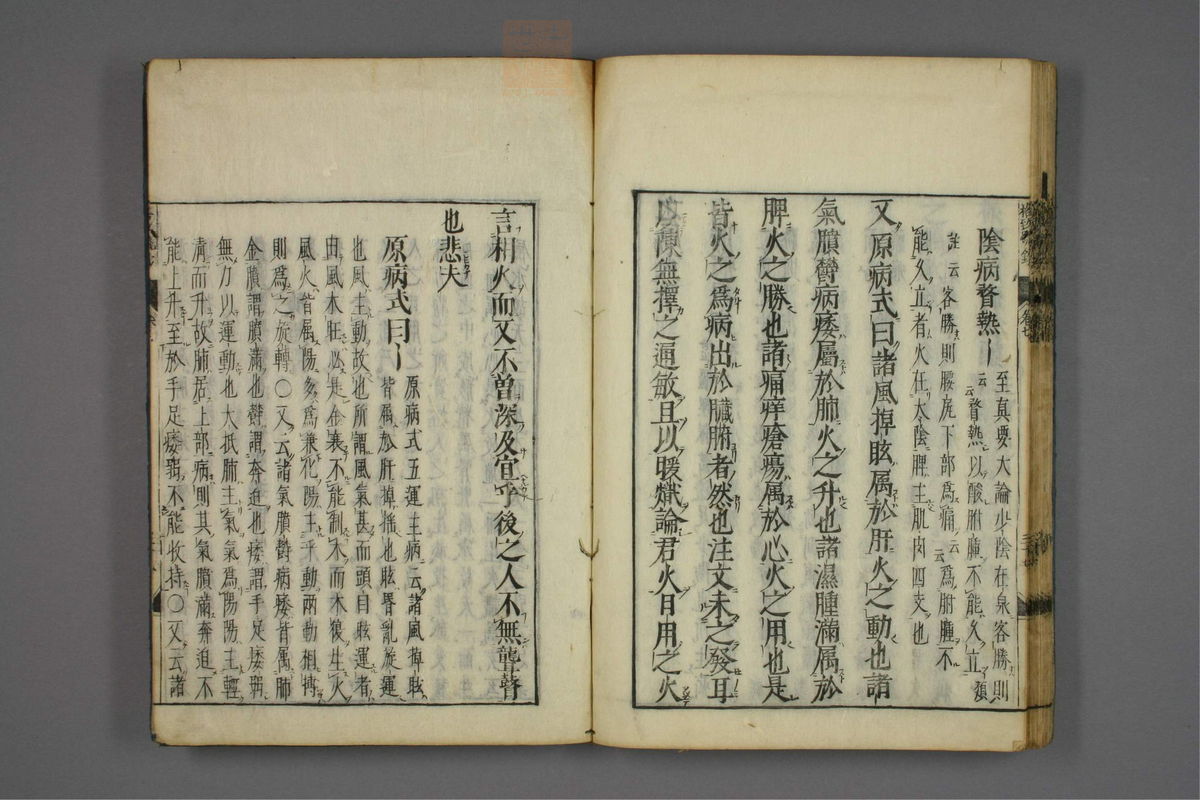 陰病瞀熱〡
至真要大論少陰在泉客勝則
云瞀熱以酸胕腫不能久立須
註云客勝則腰尻下部爲痛云爲胕腫不
能久立者火在太陰脾主肌肉四支也
又原病式曰諸風掉眩属於肝火之動也諸
氣膹鬱病痿屬於肺火之升也諸濕腫滿属於
脾火之勝也諸痛痒瘡瘍属於心火之用也是
皆火之爲病出於臓腑者然也注文未之發耳
以陳無擇之通敏且以暖熾論君火日用之火
言相火而又不曽深及宜乎後之人不無聾瞽
也悲夫
原病式曰〡
原病式五運主病云諸風掉眩
皆属於肝掉揺也眩昬亂旋運
也風主動故也所謂風氣甚而頭目眩運者
由風木旺必是金衰不能制木而木復生火
風火皆属陽多爲兼化陽主乎動兩動相搏
則爲之旋轉〇又云諸氣膹鬱病痿皆属肺
金膹謂膹滿也鬱謂奔迫也痿謂手足痿弱
無力以運動也大抵肺主氣氣爲陽陽主輕
清而升故肺居上部病則其氣膹滿奔迫不
能上升至於手足痿弱不能收持〇又云諸